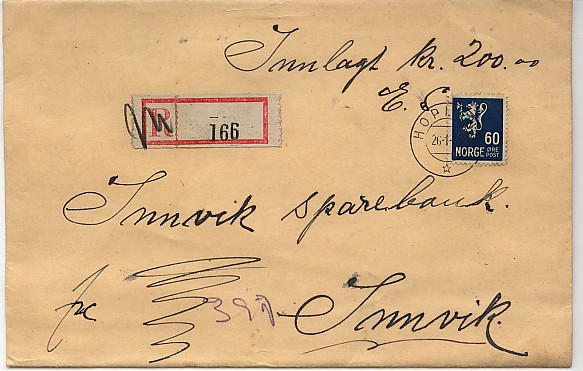 Innlagt kr. 200.00
E.
R 166
HOP
26-1
60
NORGE ØRE
POST
Innvik sparebank.
Innvik.